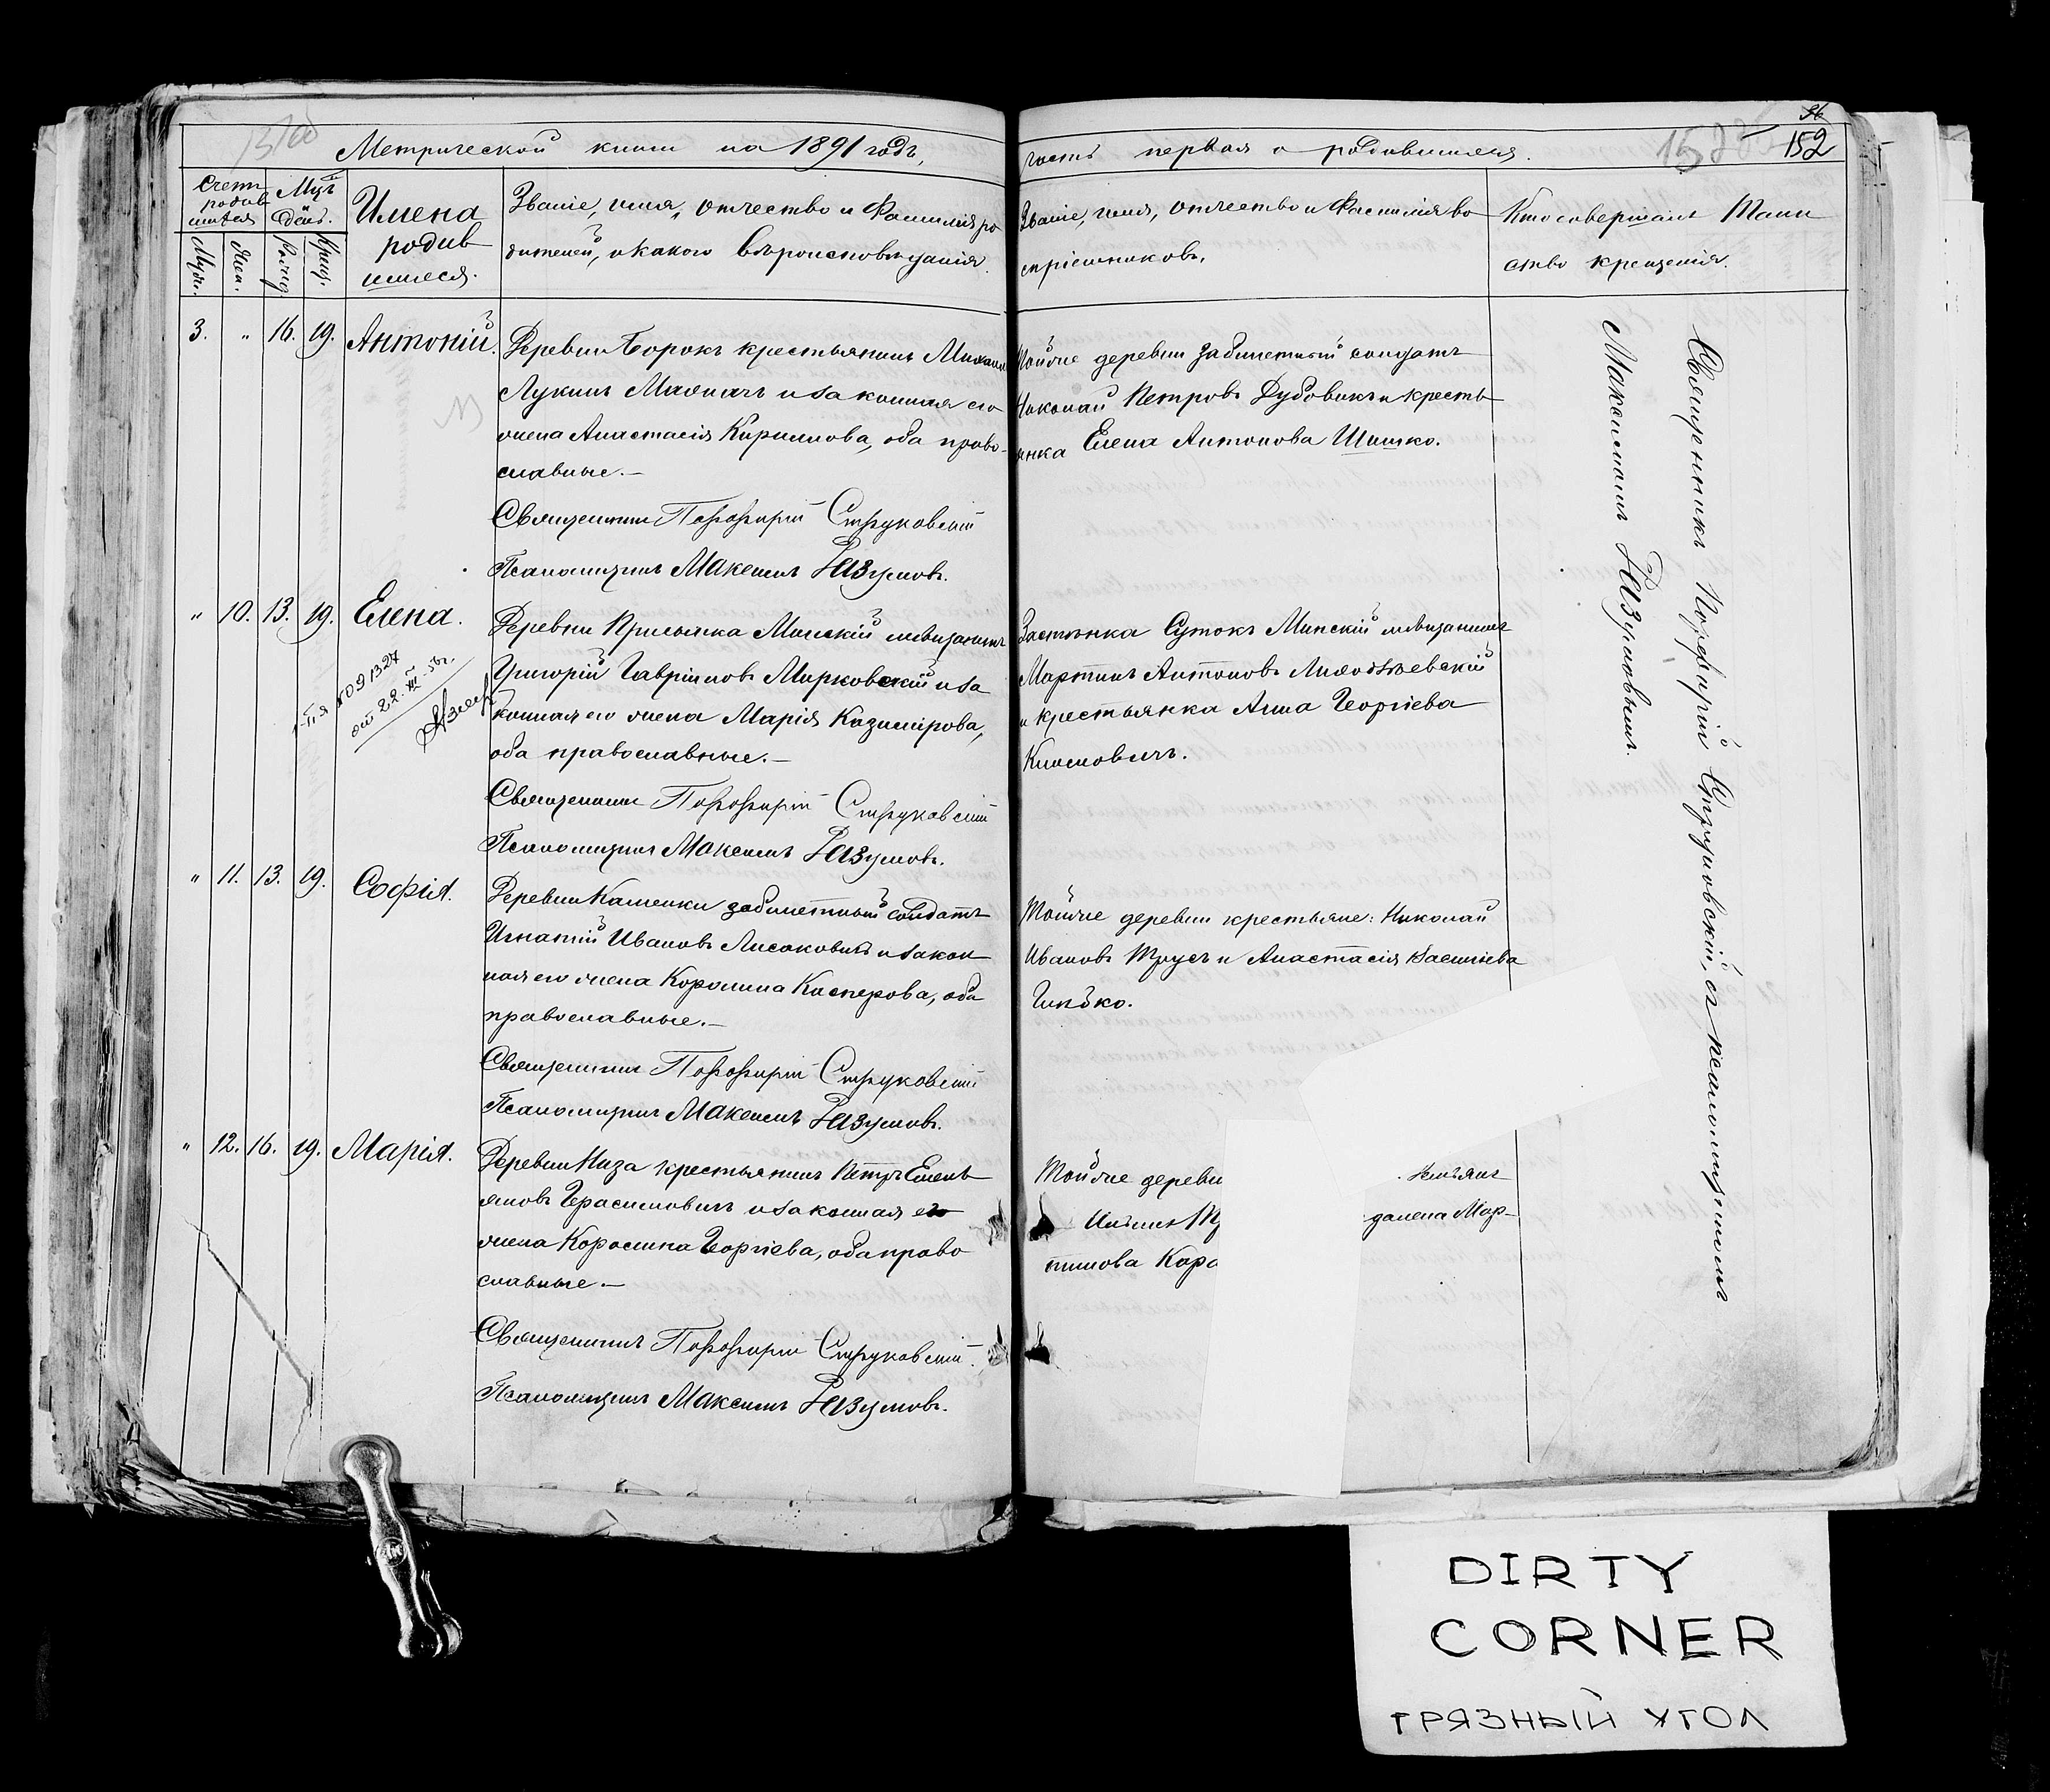 96
152
Метрической книги на 1891 годъ,
часть первая о родившихся.
Счетъ родив шихся
Мцъ и день.
Имена родив шихся.
Званіе, имя, отчество и фамилія ро
дителей, и какого вѣроисповѣданія.
Званіе, имя, отчество и фамилія во
спріемниковъ.
Кто совершалъ таин
ство крещенія.
Муж.
Жен.
Рожд.
Крещ.
3. " 16. 19. Антоній.
Деревни Борокъ крестьянинъ Михаилъ
Лукинъ и законная его
жена Анастасія Кириллова, оба право-
славные.—
Священникъ Порфирій Струковскій
Псаломщикъ Максимъ Разумовъ.
Тойже деревни забилетный солдатъ
Николай Петровъ Дубовикъ и кресть
янка Елена Антонова Шишко.
" 10. 13. 19. Елена.
Деревни Минскій мѣщанинъ
Григорій Гавріиловъ Мирковскій и за
конная его жена Марія Казимірова,
оба православные.—
Священникъ Порфирій Струковскій
Псаломщикъ Максимъ Разумовъ.
Застѣнка Сутокъ Минскій мѣщанинъ
Мартинъ Антоновъ
и крестьянка Анна Георгіева
Климовичъ.
091327
от 22. XII. 56г.
" 11. 13. 19. Софія.
Деревни Каменки забилетный солдатъ
Игнатій Ивановъ Лисаковичъ и закон
ная его жена Каролина Касперова, оба
православные.—
Священникъ Порфирій Струковскій
Псаломщикъ Максимъ Разумовъ.
Тойже деревни крестьяне: Николай
Ивановъ Трусъ и Анастасія Василіева
Гинько.
" 12. 16. 19. Марія.
Деревни Низа крестьянинъ Петръ Емель
яновъ Герасимовичъ и законная его
жена Каролина Георгіева, оба право
славные.—
Священникъ Порфирій Струковскій
Псаломщикъ Максимъ Разумовъ.
Тойже деревн
далена Мар-
тинова Кара
Священникъ Порфирій Струковскій, съ псаломщикомъ
Максимомъ Разумовымъ.
DIRTY
CORNER
ГРЯЗНЫЙ УГОЛ